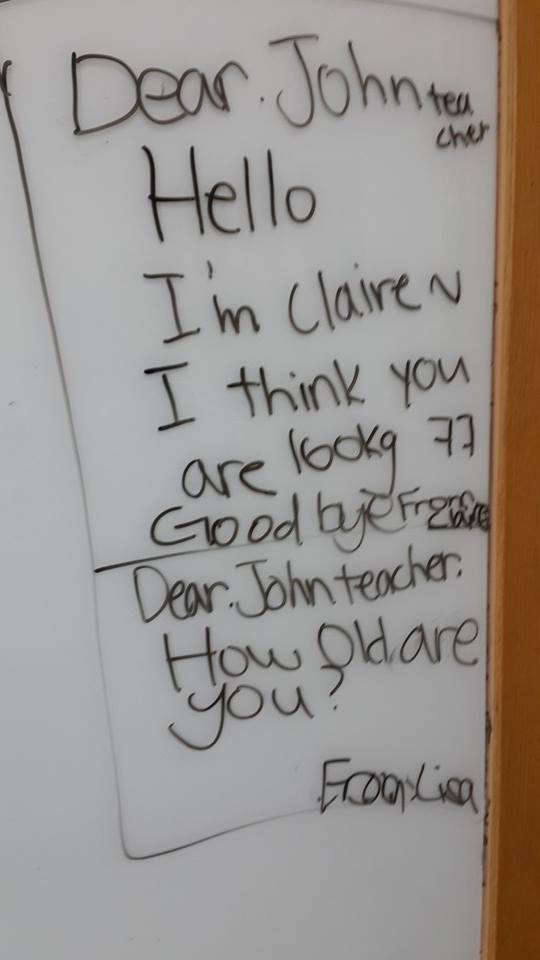 Dear. John teacher
Hello
I'm Claire ~
I think you
are 100kg ㅋㅋ
Good bye From
Dear. John teacher.
How old are
you?
From Lisa